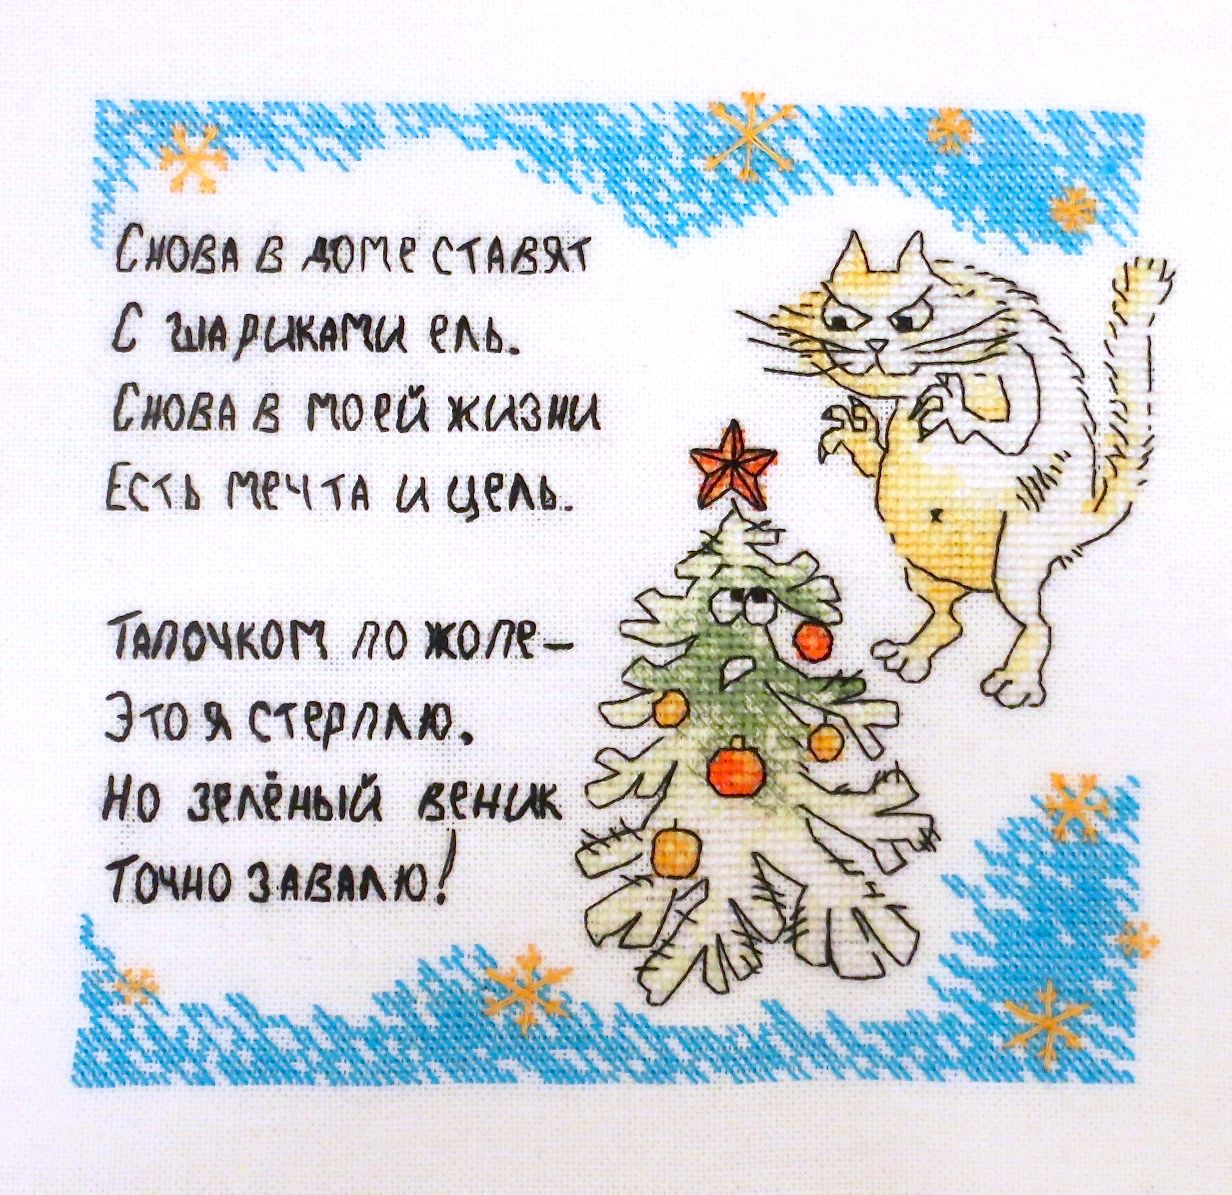 Снова в доме ставят
С шариками ель.
Снова в моей жизни
Есть мечта и цель.
Тапочком по жопе–
Это я стерплю,
Но зелёный веник
Точно завалю!